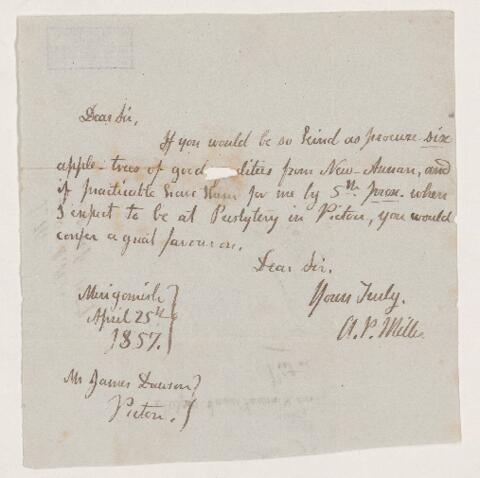 Dear Sir,
If you would be so kind as procure six
apple-trees of good lities from New-Annan, and
if practicable have them for me by 5th prox. when
I expect to be at Presbytery in Pictou, you would
confer a great favour on.
Dear Sir.
Yours Truly.
A. P. Miller
Merigomish
April 25th
1857.
Mr James Dawson
Pictou.